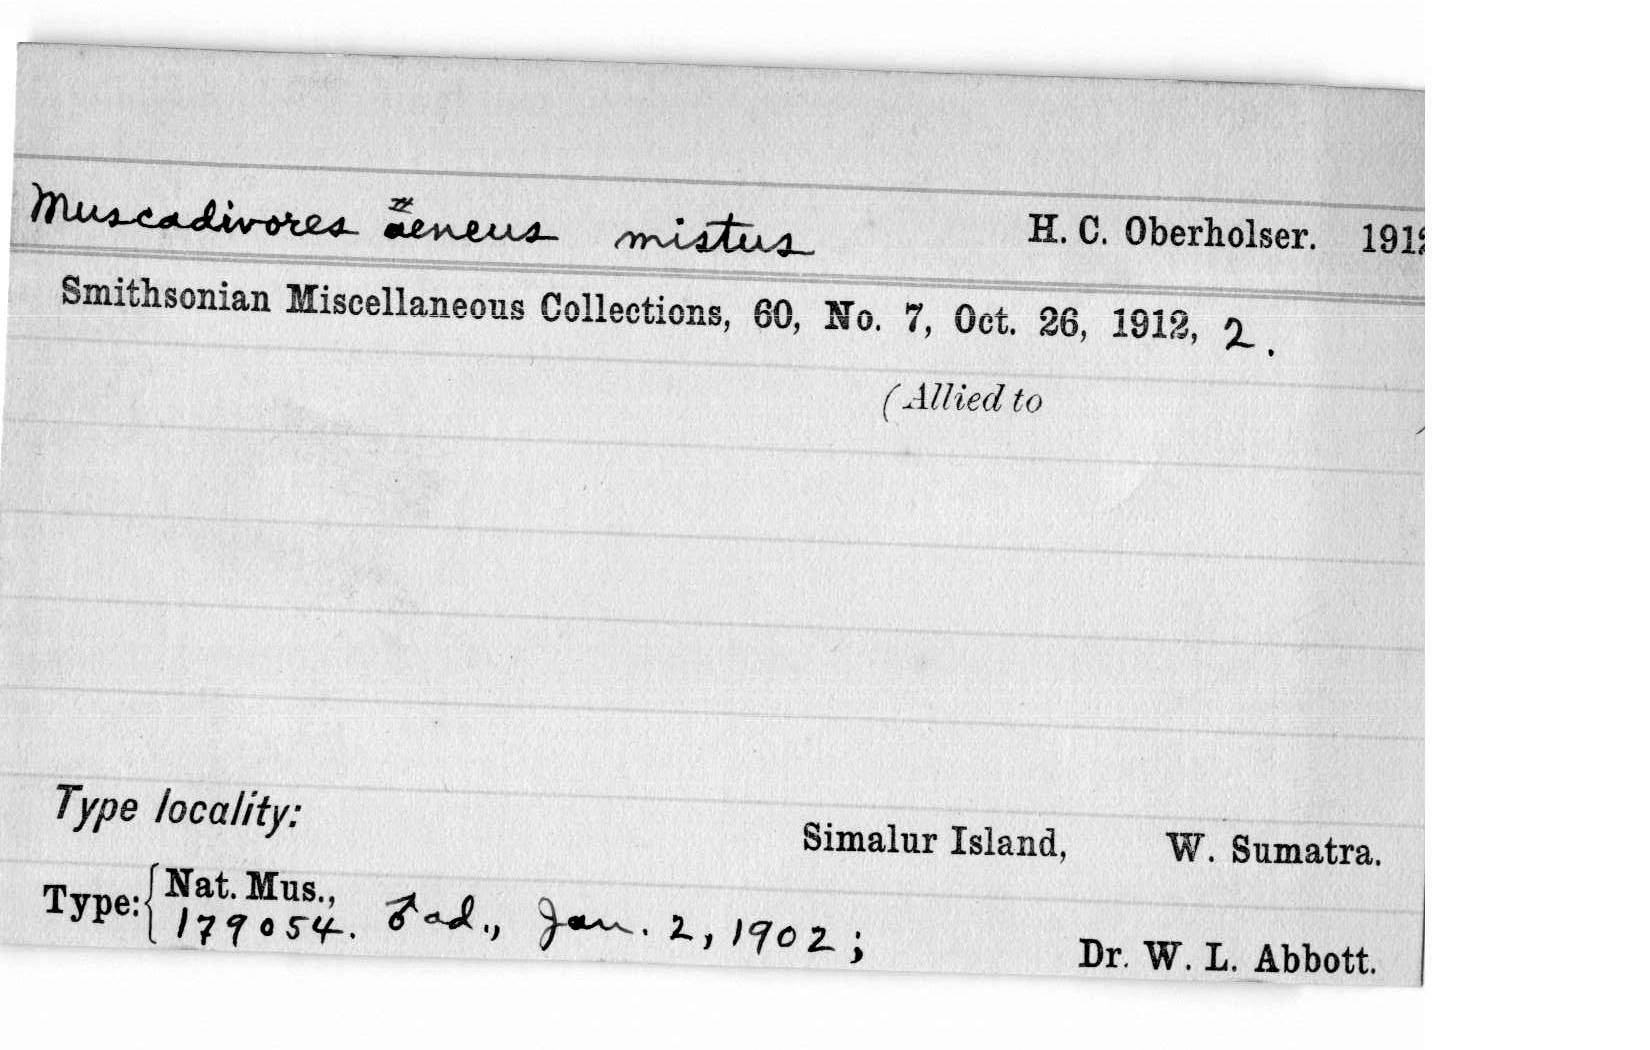 Muscadivores aeneus mistus H. C. Oberholser. 1912
Smithsonian Miscellaneous Collections, 60, No. 7, Oct. 26, 1912, 2.
(Allied to )
Type locality:
Simalur Island, W. Sumatra.
Type: { Nat. Mus.,
179054. ♂ ad., Jan. 2, 1902; Dr. W. L. Abbott.